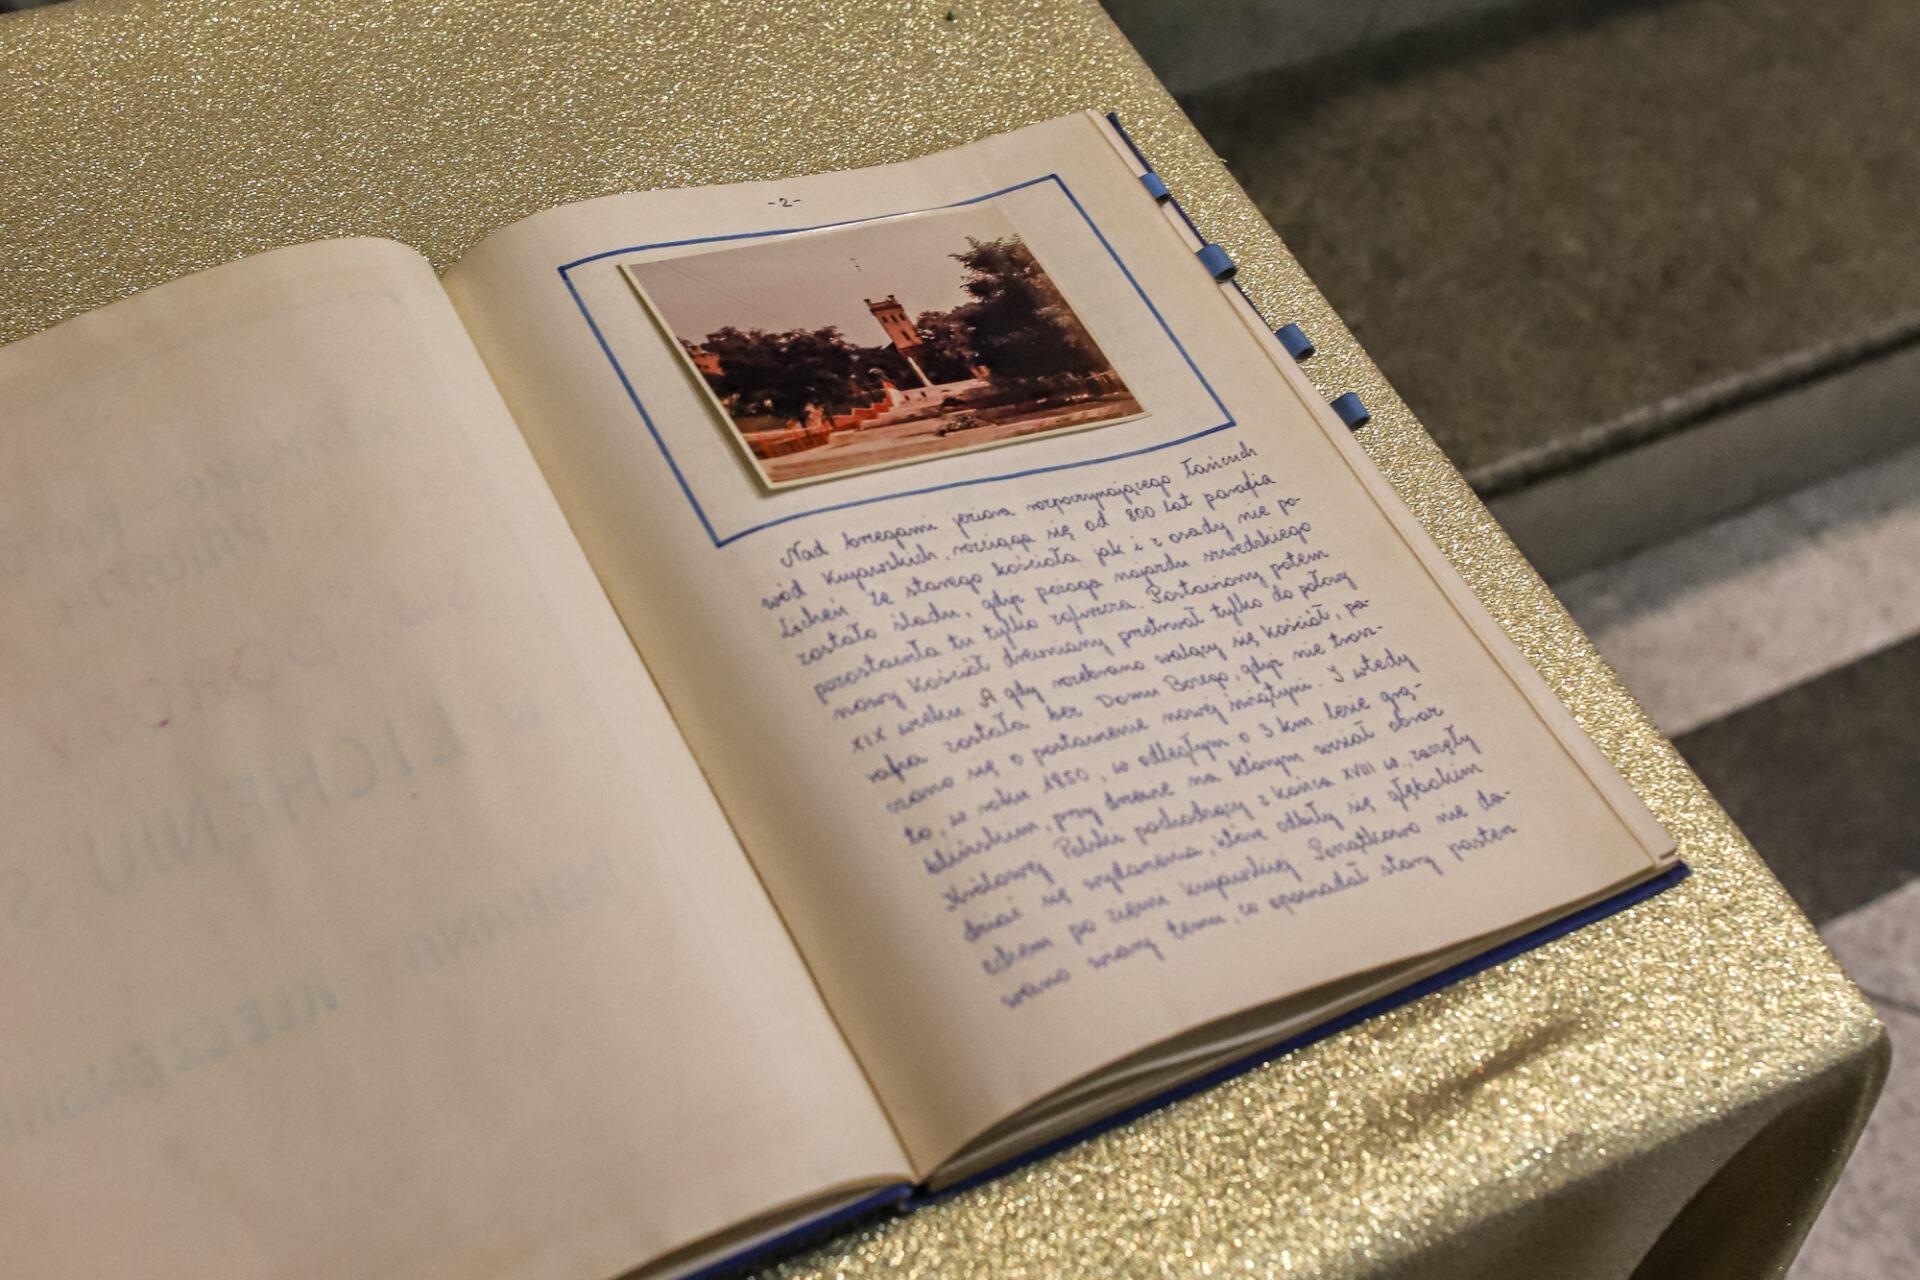 -2-
Nad brzegami jeziora rozpoczynającego łańcuch
wód Kujawskich, rozciąga się od 800 lat parafia
Licheń. Ze starego kościoła jak i z osady nie po-
zostało śladu, gdyż pożoga najazdu szwedzkiego
pozostawiła tu tylko zgliszcza. Postawiony potem
nowy Kościół drewniany przetrwał tylko do połowy
XIX wieku. A gdy rozebrano walący się kościół, pa-
rafia została bez Domu Bożego, gdyż nie trosz-
czano się o postawienie nowej świątyni. I wtedy
to, w roku 1850, w odległym o 3 km. lesie grą-
blińskim, przy drzewie na którym wisiał obraz
Królowej Polski pochodzący z końca XVIII w., zaczęły
dziać się wydarzenia, które odbiły się głębokim
echem po ziemi kujawskiej. Początkowo nie da-
wano wiary temu, co opowiadał stary pasterz
W LICHENIU S
DEKANAT KLECZEWSKI